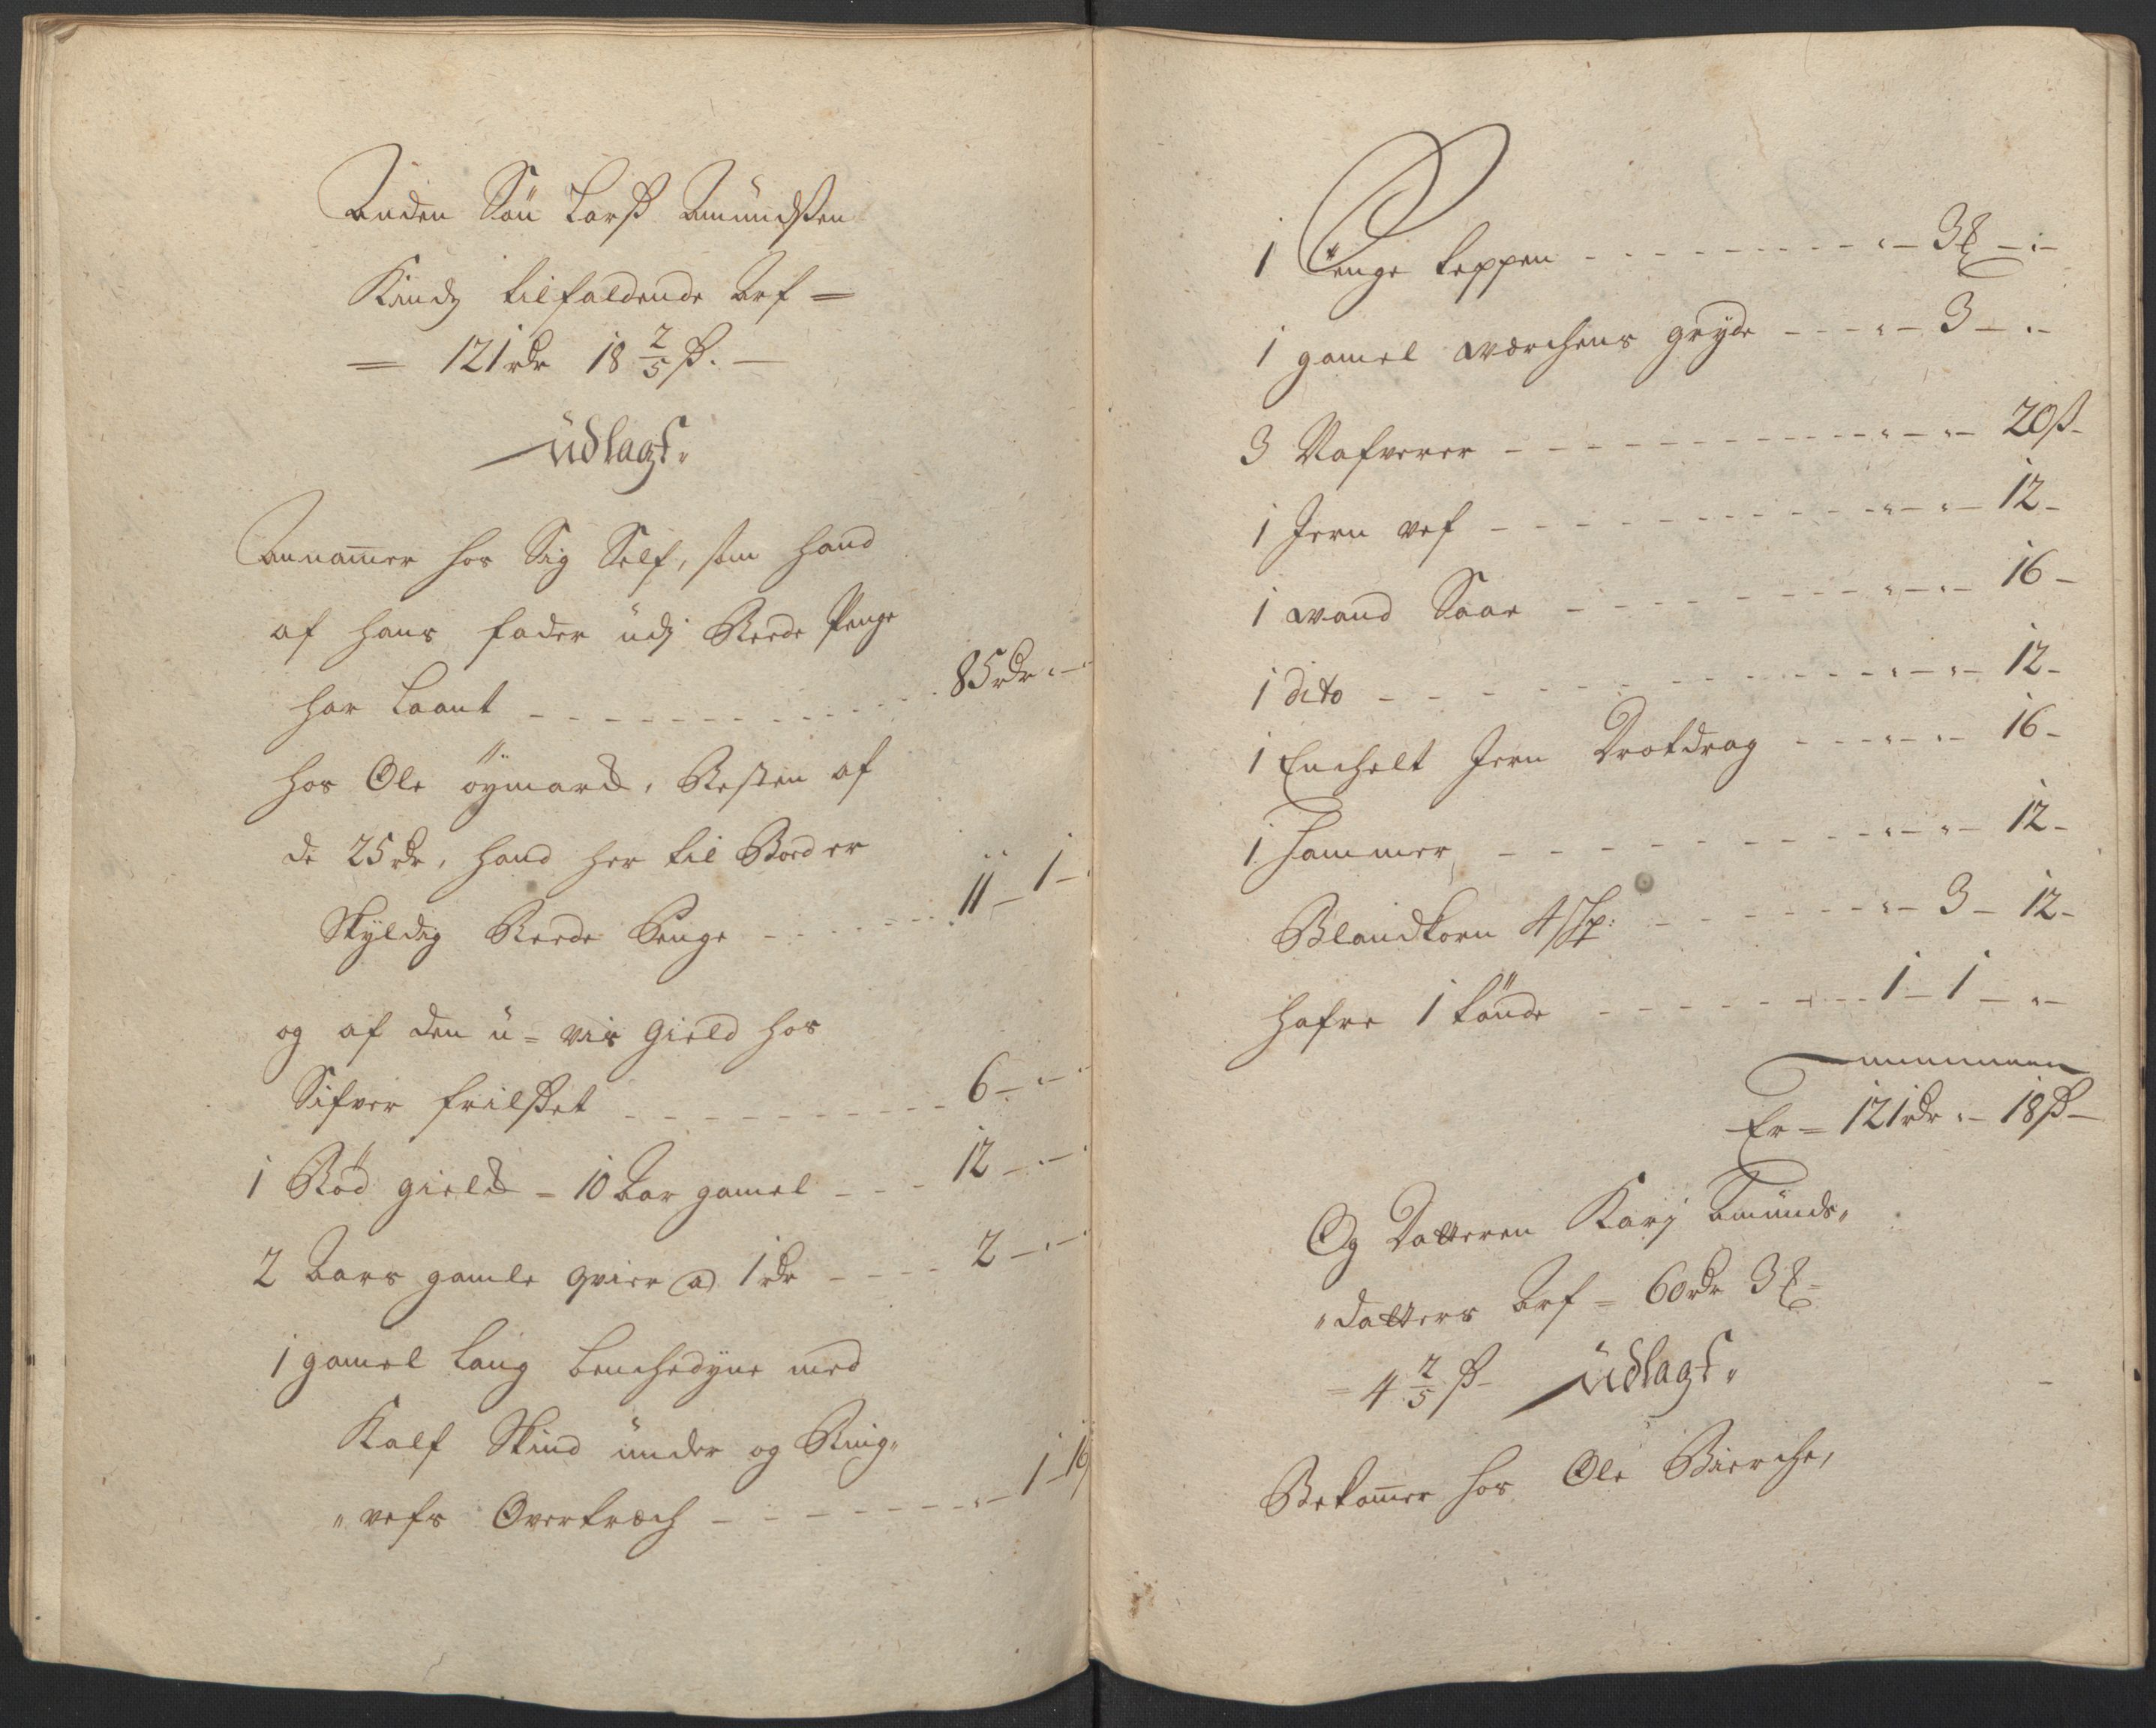 Anden Søn Larss Amundssen
Kindz tilfaldende Arf =
= 121 rdr 18 2/5 ß. —
Udlagt„
Annammer hos Sig Self, som hand
af hans fader udj Rede Penge
har Laant - - - - - - - 85 rdr „ - „
hos Ole øymark, Resten af
de 25 rdr, hand her til Boed er
Skyldig Rede Penge - - - - - 11 - 1 - „
og af den u = vis Gield hos
Sifver frilsset - - - - - - - 6 - „ - „
1 Rød Gield = 10 Aar gamel - - - 12 - „ - „
2 Aars gamle qvier a 1 rdr - - - - 2 - „ - „
1 gamel Lang benchedyne med
Kalf Skind under og Ring„
„vefs Overtræch - - - - - - „ - 1 - 16
1 Senge teppen - - - - - - - „ - 3 ꝛ - „ -
1 gamel værchens gryde - - - „ - 3 - „ -
3 Nafverer - - - - - - - - „ - „ - 20 ß -
1 Jern vef - - - - - - - - „ - „ - 12 -
1 Vand Saae - - - - - - - „ - „ - 16 -
1 dito - - - - - - - - - „ - „ - 12 -
1 Enchelt Jern Drotdrag - - - „ - „ - 16 -
1 Hammer - - - - - - - „ - „ - 12 -
Blandkorn 4 Sp: - - - - - - „ - 3 - 12 -
Hafre 1 tønde - - - - - - - 1 - 1 - „ -
Er = 121 rdr „ - 18 ß -
Og Datteren Karj Amunds„
„datters Arf = 60 rdr 3 ꝛ =
= 4 2/5 ß - Udlagt„
Bekommer hos Ole Bierche,